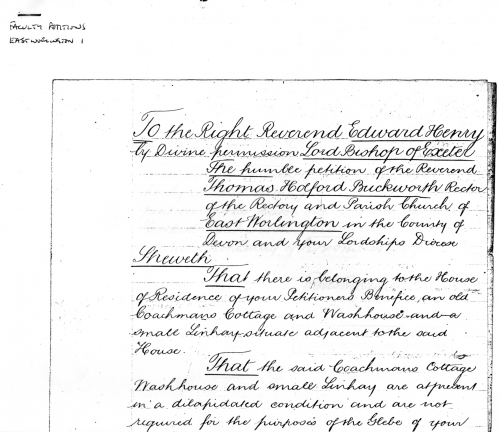 FACULTY PETITIONS
EAST WORLINGTON 1
To the Right Reverend Edward Henry
by Divine permission Lord Bishop of Exeter
The humble petition of the Reverend
Thomas Holford Buckworth Rector
of the Rectory and Parish Church of
East Worlington in the County of
Devon and your Lordships Diocese
Sheweth
That there is belonging to the House
of Residence of your Petitioners Benefice, an old
Coachmans Cottage and Washhouse and a
small Linhay situate adjacent to the said
House.
That the said Coachmans Cottage
Washhouse and small Linhay are at present
in a dilapidated condition and are not
required for the purposes of the Glebe of your